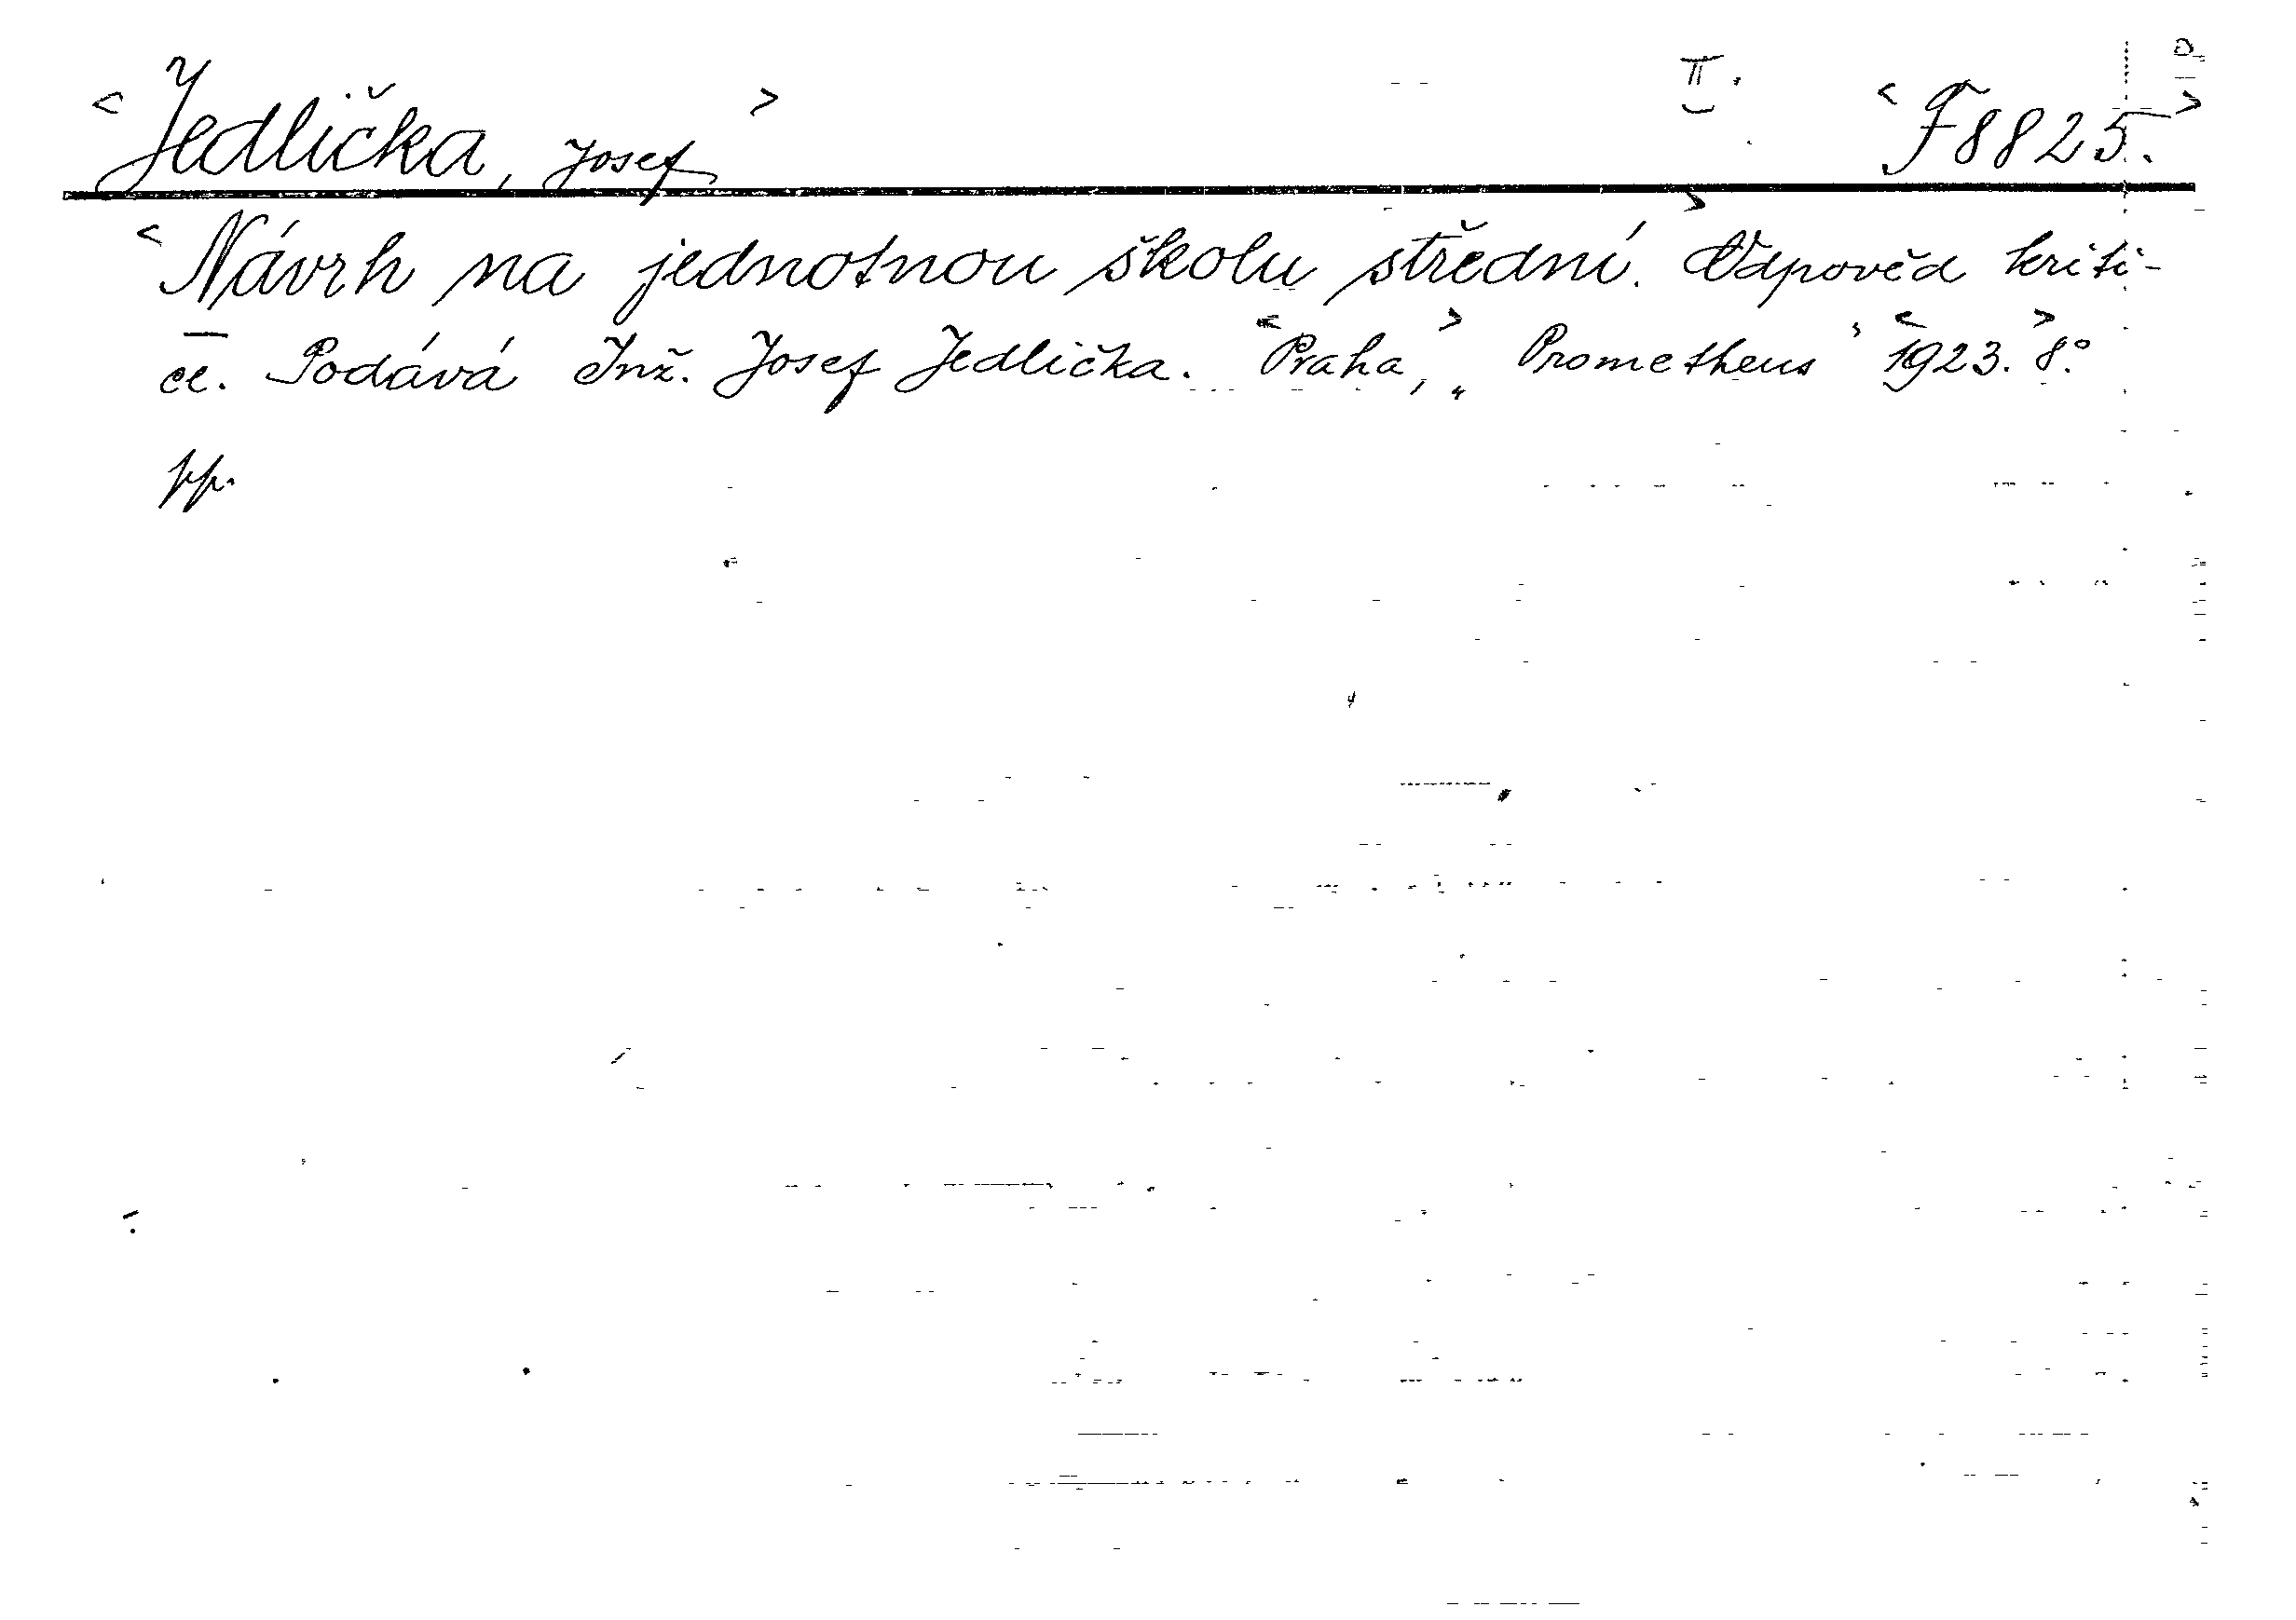 <Jedlička, Josef> II. <F 8825.>
<Návrh na jednotnou školu střední.> Odpověd kriti-
ce. Podává Inž. Josef Jedlička. <Praha,> „Prometheus‘ <1923.> 8.°
pp.